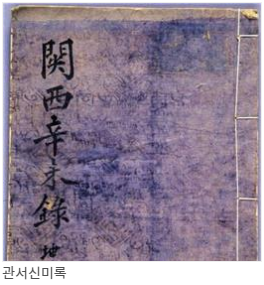 關西辛未錄
地
관서신미록